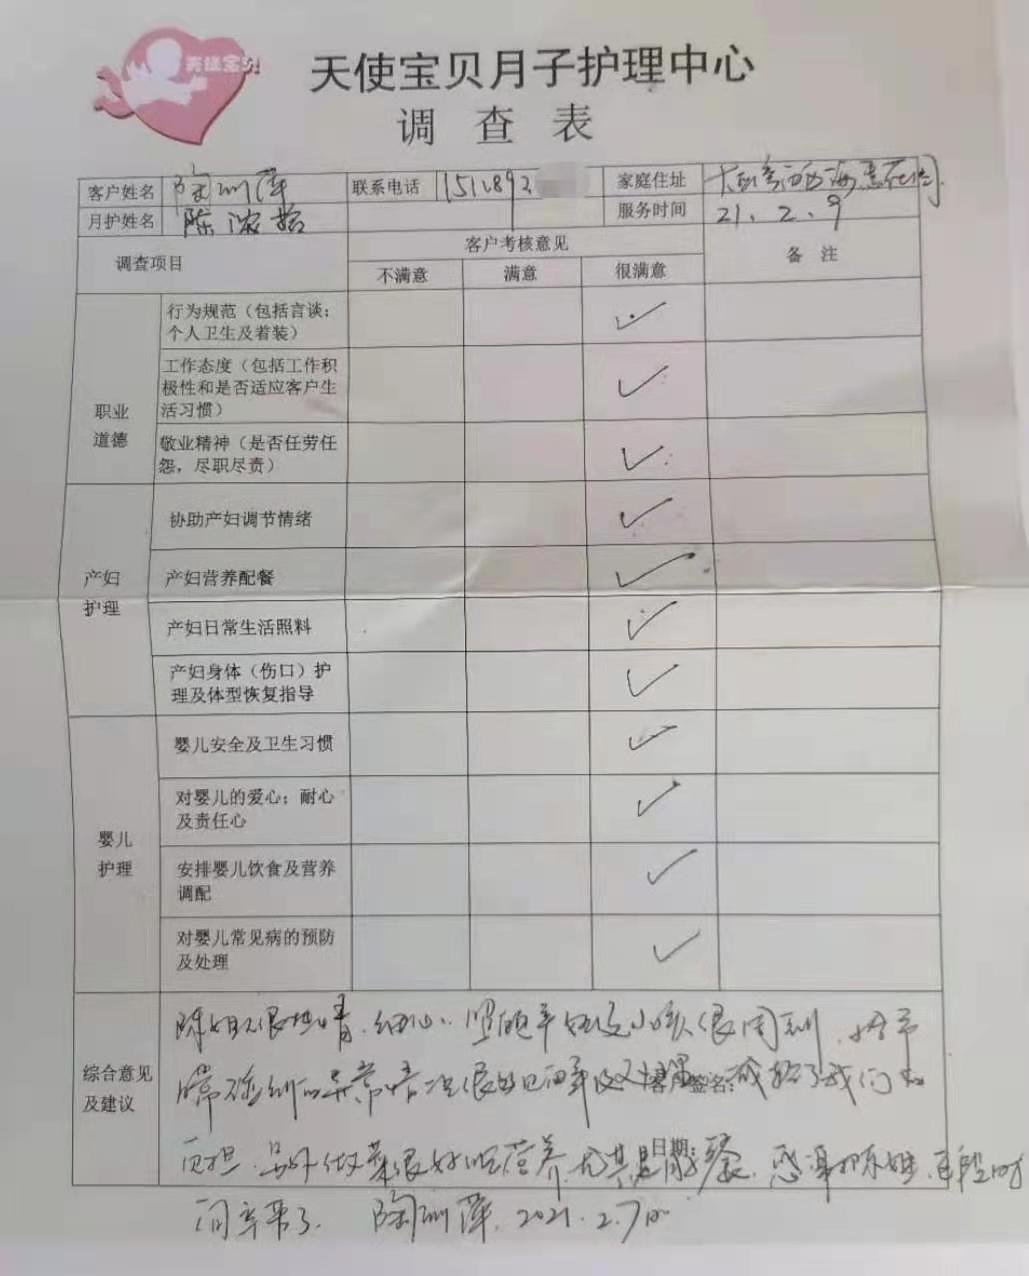 天使宝贝
天使宝贝月子护理中心
调查表
客户姓名 陶 萍 联系电话 1511892 家庭住址
月护姓名 陈 服务时间 21.2.9
调查项目 客户考核意见 备 注
不满意 满意 很满意
职业
道德
行为规范（包括言谈；
个人卫生及着装）
工作态度（包括工作积
极性和是否适应客户生
活习惯）
敬业精神（是否任劳任
怨，尽职尽责）
产妇
护理
协助产妇调节情绪
产妇营养配餐
产妇日常生活照料
产妇身体（伤口）护
理及体型恢复指导
婴儿
护理
婴儿安全及卫生习惯
对婴儿的爱心；耐心
及责任心
安排婴儿饮食及营养
调配
对婴儿常见病的预防
及处理
综合意见
及建议
陈姐很 细心 照顾 小孩很周到
异常情况很 签名： 了我们
负担 另外做菜很好吃营养 尤其是 日期： 感谢陈姐
间辛苦了 陶 萍 2021.2.7